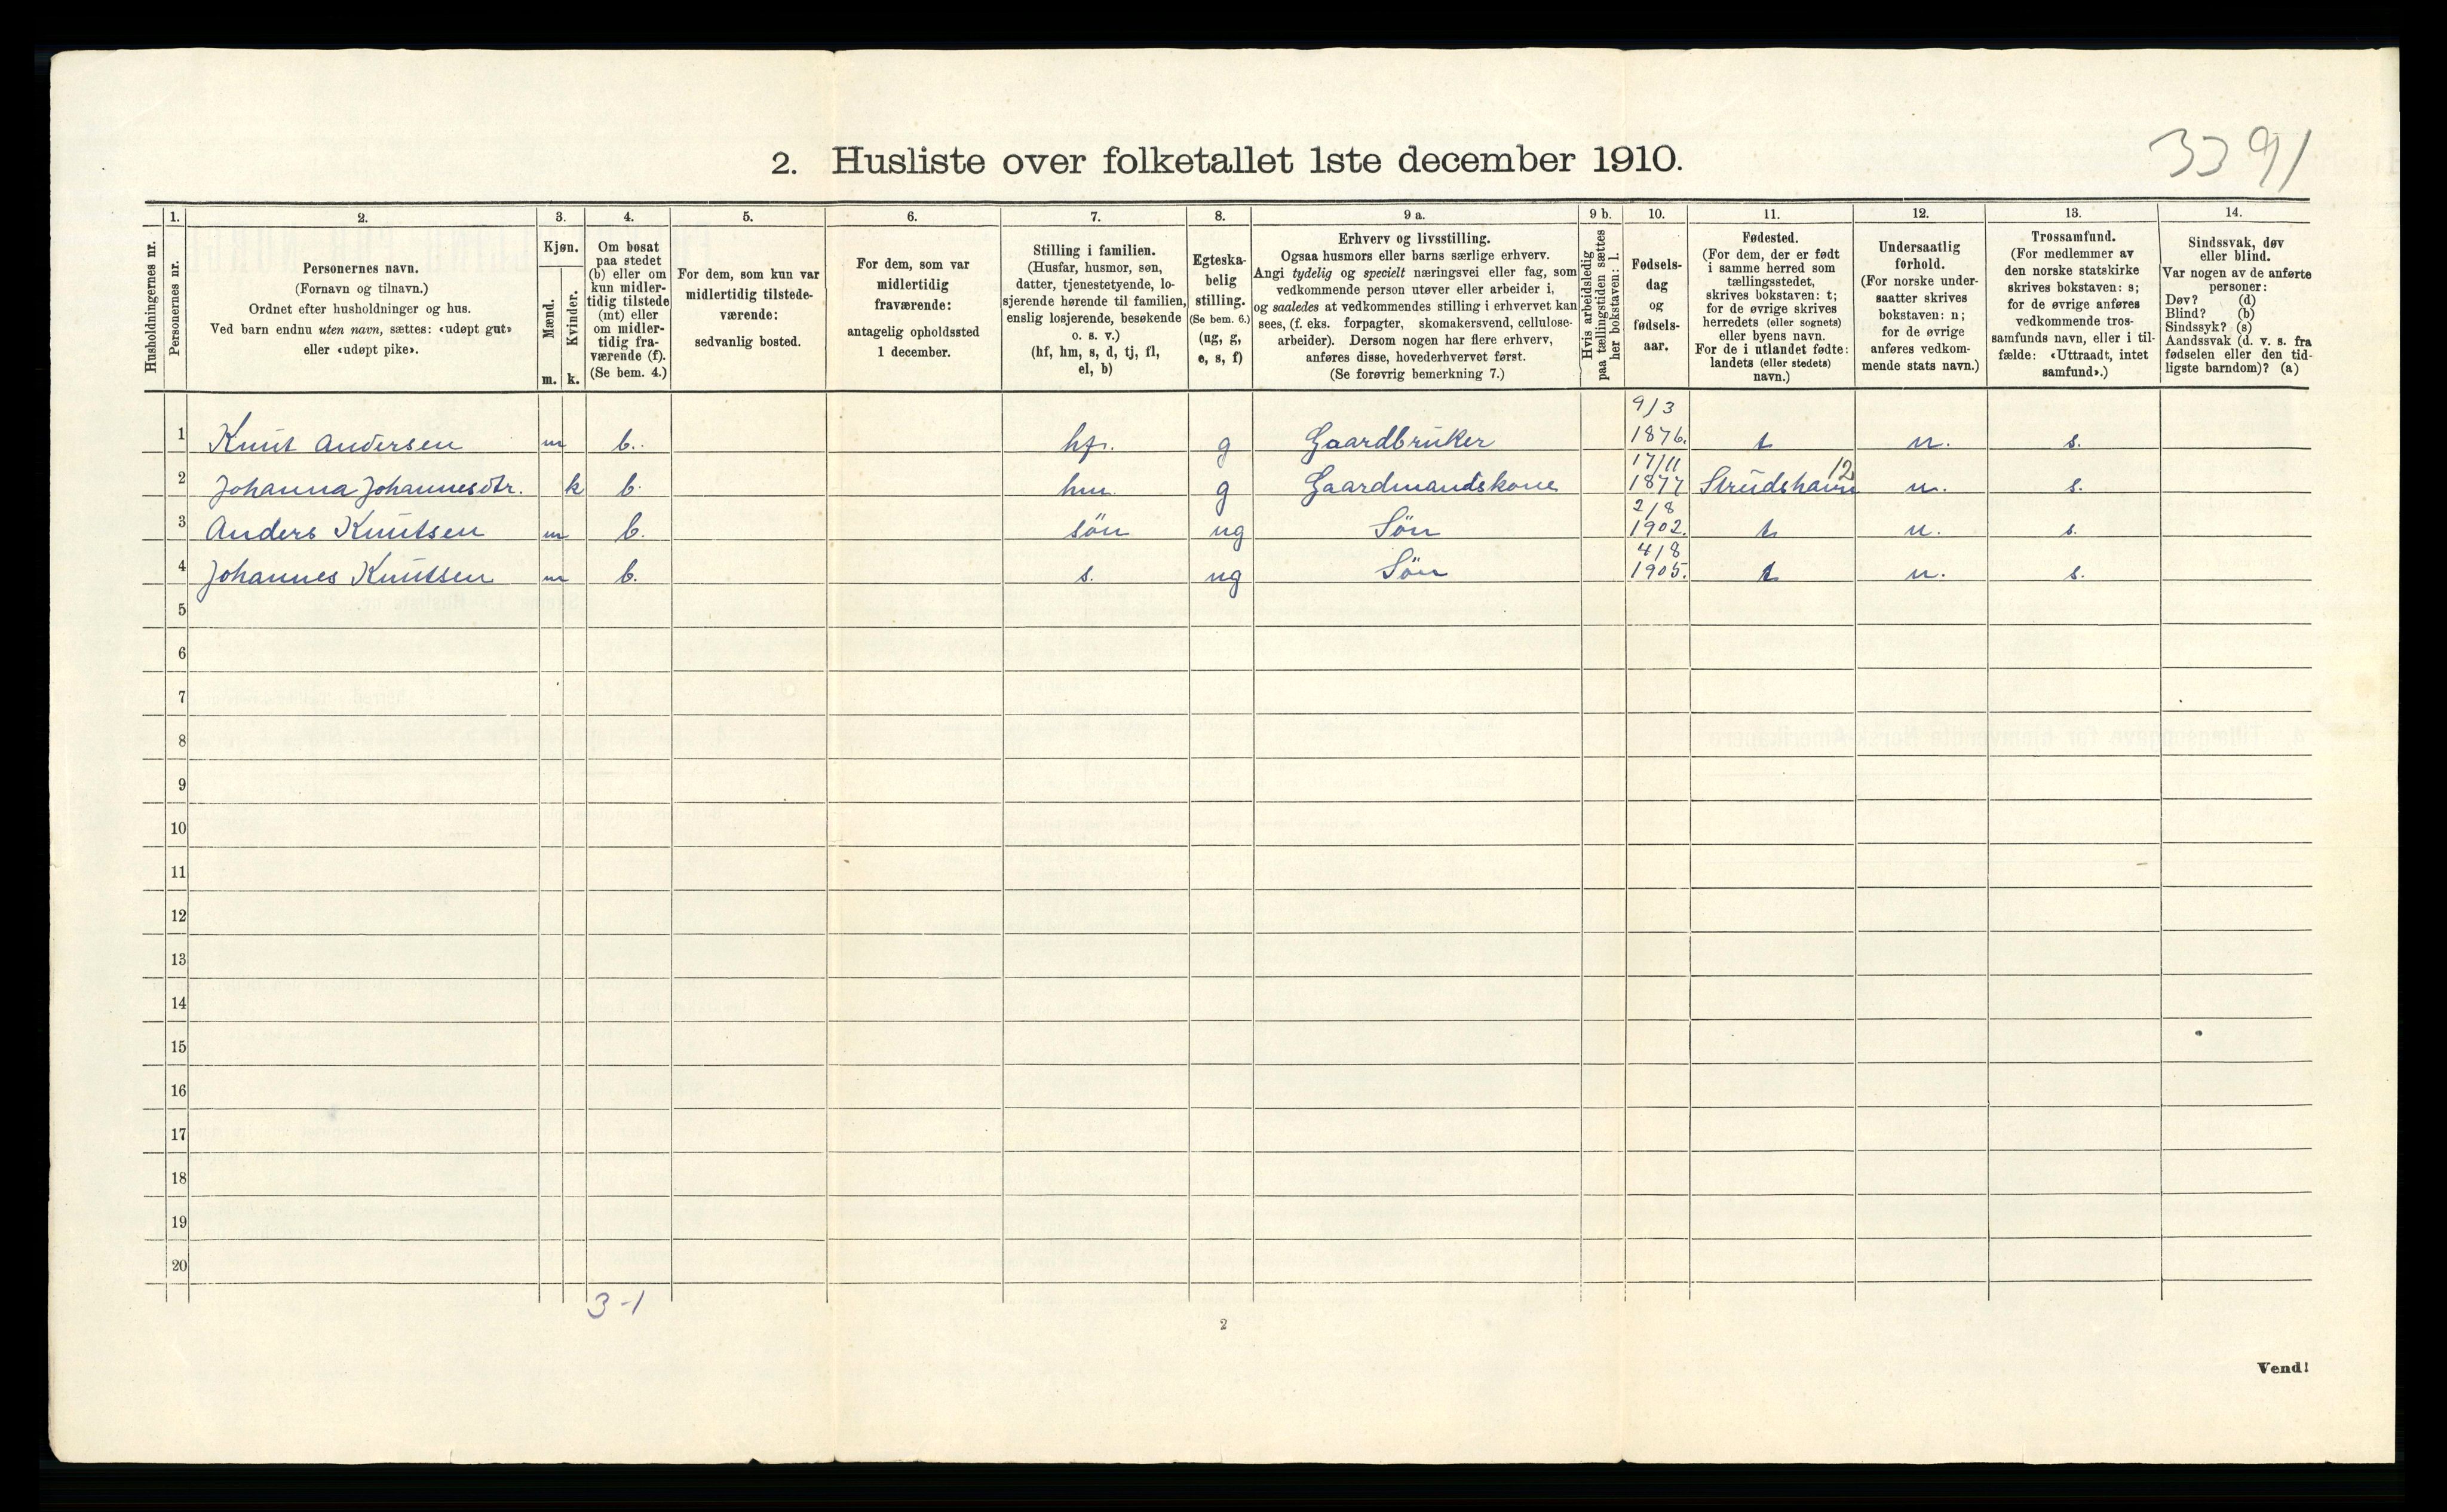 3391
2. Husliste over folketallet 1ste december 1910.
Husholdningernes nr.
1.
Personernes nr.
2.
Personernes navn.
(Fornavn og tilnavn.)
Ordnet efter husholdninger og hus.
Ved barn endnu uten navn, sættes: «udøpt gut»
eller «udøpt pike».
3.
Kjøn.
Mænd.
Kvinder.
m. k.
4.
Om bosat
paa stedet
(b) eller om
kun midler-
tidig tilstede
(mt) eller
om midler-
tidig fra-
værende (f).
(Se bem. 4.)
5.
For dem, som kun var
midlertidig tilstede-
værende:
sedvanlig bosted.
6.
For dem, som var
midlertidig
fraværende:
antagelig opholdssted
1 december.
7.
Stilling i familien.
(Husfar, husmor, søn,
datter, tjenestetyende, lo-
sjerende hørende til familien,
enslig losjerende, besøkende
o. s. v.)
(hf, hm, s, d, tj, fl,
el, b)
8.
Egteska-
belig
stilling.
(Se bem. 6.)
(ug, g,
e, s, f)
9 a.
Erhverv og livsstilling.
Ogsaa husmors eller barns særlige erhverv.
Angi tydelig og specielt næringsvei eller fag, som
vedkommende person utøver eller arbeider i,
og saaledes at vedkommendes stilling i erhvervet kan
sees, (f. eks. forpagter, skomakersvend, cellulose-
arbeider). Dersom nogen har flere erhverv,
anføres disse, hovederhvervet først.
(Se forøvrig bemerkning 7.)
9 b.
Hvis arbeidsledig
paa tællingstiden sættes
her bokstaven: l.
10.
Fødsels-
dag
og
fødsels-
aar.
11.
Fødested.
(For dem, der er født
i samme herred som
tællingsstedet,
skrives bokstaven: t;
for de øvrige skrives
herredets (eller sognets)
eller byens navn.
For de i utlandet fødte:
landets (eller stedets)
navn.)
12.
Undersaatlig
forhold.
(For norske under-
saatter skrives
bokstaven: n;
for de øvrige
anføres vedkom-
mende stats navn.)
13.
Trossamfund.
(For medlemmer av
den norske statskirke
skrives bokstaven: s;
for de øvrige anføres
vedkommende tros-
samfunds navn, eller i til-
fælde: «Uttraadt, intet
samfund».)
14.
Sindssvak, døv
eller blind.
Var nogen av de anførte
personer:
Døv? (d)
Blind? (b)
Sindssyk? (s)
Aandssvak (d. v. s. fra
fødselen eller den tid-
ligste barndom)? (a)
9/3
1 Knut Andersen m b. hf. g Gaardbruker 1876. t n. s.
17/11 12
2 Johanna Johannesdtr. k b. hm. g Gaardmandskone 1877 Strudshavn n. s.
2/8
3 Anders Knutsen m b. søn ug Søn 1902. t n. s.
4/8
4 Johannes Knutsen m b. s. ug Søn 1905. t n. s.
5
6
7
8
9
10
11
12
13
14
15
16
17
18
19
20
3-1
2
Vend!